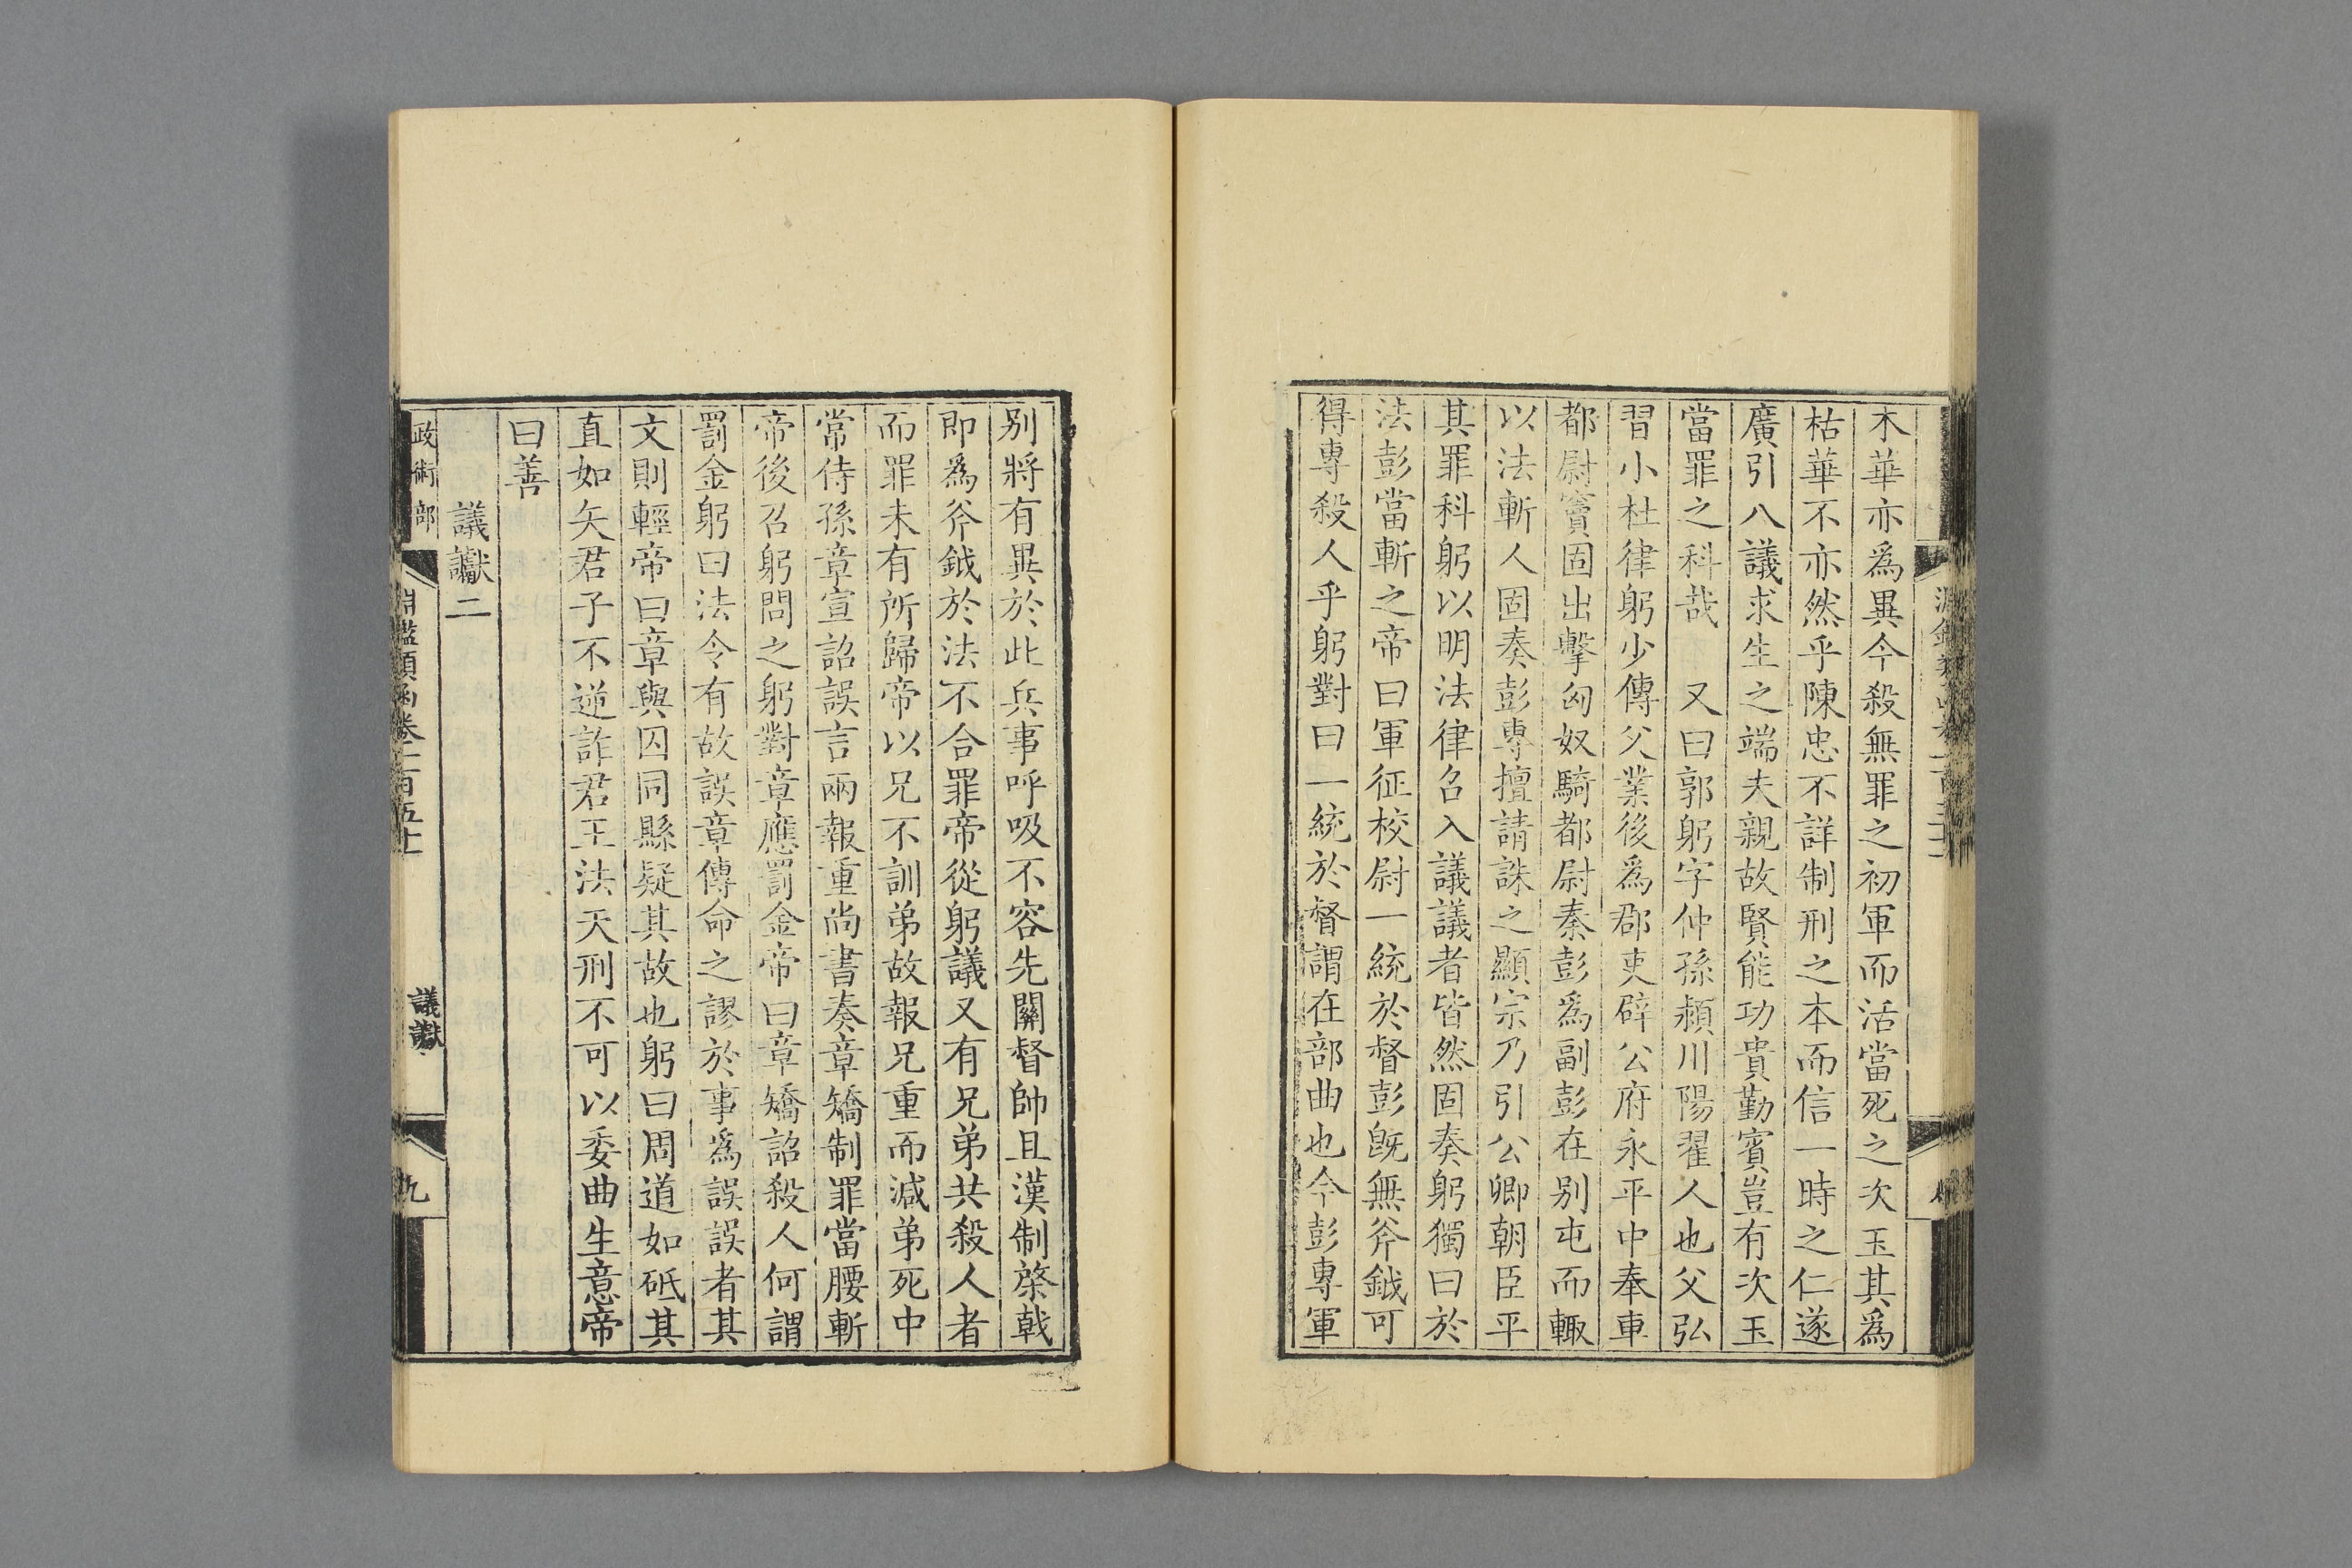 木華亦爲異今殺無罪之初軍而活當死之次玉其爲
枯華不亦然乎陳忠不詳制刑之本而信一時之仁遂
廣引八議求生之端夫親故賢能功貴勤賓豈有次玉
當罪之科哉　又曰郭躬字仲孫潁川陽翟人也父弘
習小杜律躬少傳父業後爲郡吏辟公府永平中奉車
都尉竇固出擊匈奴騎都尉秦彭爲副彭在别屯而輙
以法斬人固奏彭專擅請誅之顯宗乃引公卿朝臣平
其罪科躬以明法律召入議議者皆然固奏躬獨曰於
法彭當斬之帝曰軍征校尉一統於督彭旣無斧鉞可
得專殺人乎躬對曰一統於督謂在部曲也今彭專軍
别將有異於此兵事呼吸不容先關督帥且漢制棨戟
即爲斧鉞於法不合罪帝從躬議又有兄弟共殺人者
而罪未有所歸帝以兄不訓弟故報兄重而減弟死中
常侍孫章宣詔誤言兩報重尚書奏章矯制罪當腰斬
帝後召躬問之躬對章應罰金帝曰章矯詔殺人何謂
罰金躬曰法令有故誤章傳命之謬於事爲誤誤者其
文則輕帝曰章與囚同縣疑其故也躬曰周道如砥其
直如矢君子不逆詐君王法天刑不可以委曲生意帝
曰善
議讞二
政術部　淵鑑類函卷一百五十　議讞　九